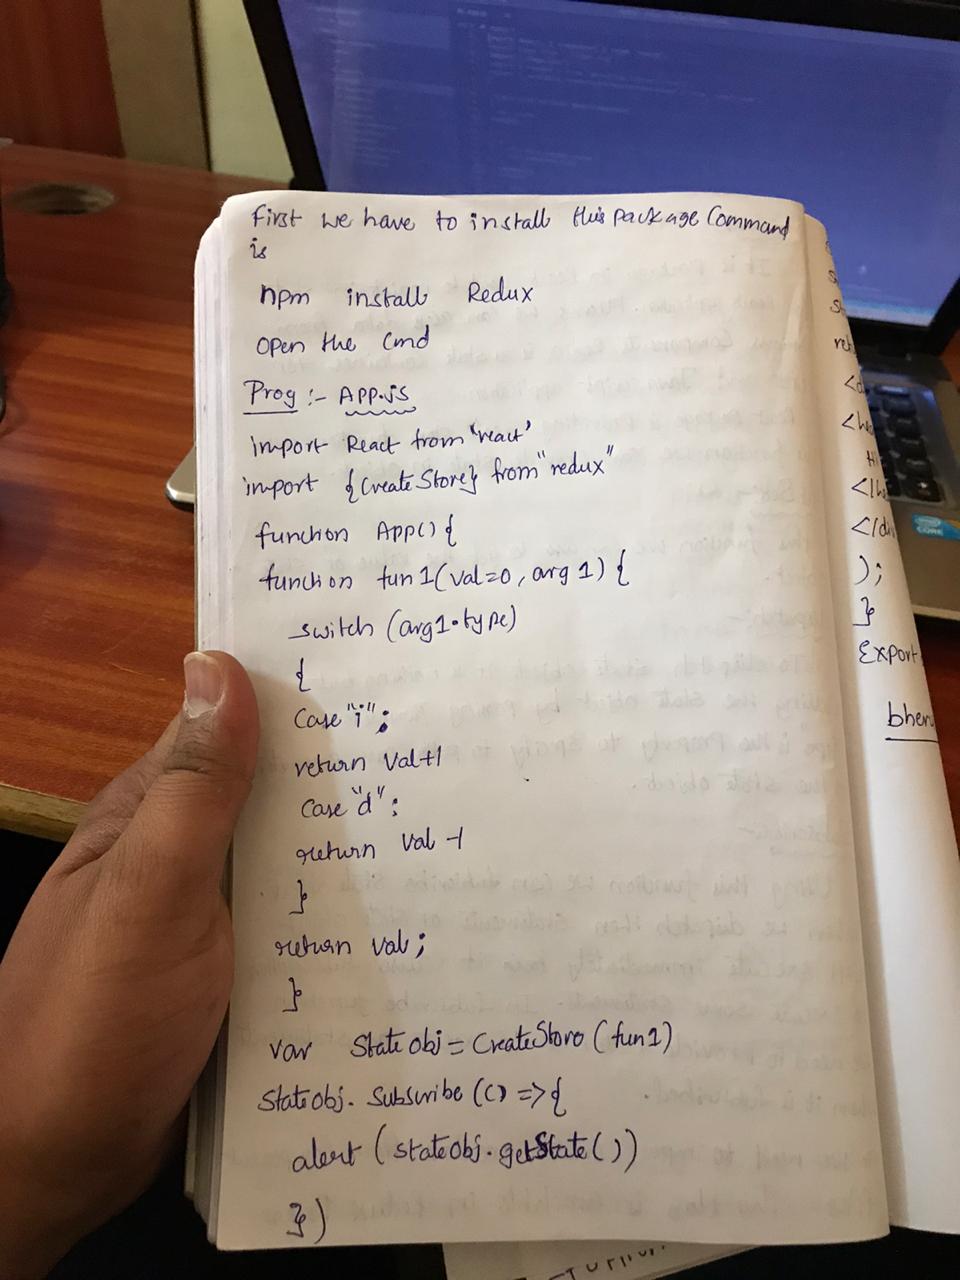 First we have to install this package Command
is
npm install Redux
open the cmd
Prog :- APP.js
import React from "react'
import {CreateStore} from "redux"
function App() {
function fun1(val=0, arg1) {
switch (arg1.type)
{
Case "i";
return val+1
Case "d":
return val -1
}
return val;
}
var Stateobj = CreateStore (fun1)
Stateobj. Subscribe (() => {
alert (stateobj.getState())
})
ret
<d
<he
</he
</di
);
}
Export